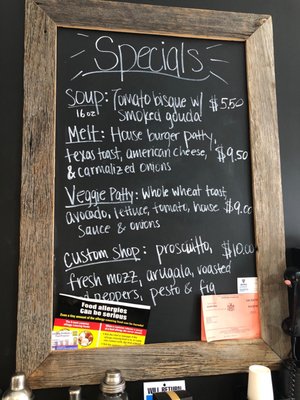 Specials
SOUP: Tomato bisque w/ $5.50
16oz smoked gouda
Melt: House burger patty,
texas toast, american cheese, $9.50
& carmalized onions
Veggie Patty: whole wheat toast,
avocado, lettuce, tomato, house $9.00
sauce & onions
Custom Shop: prosciutto, $10.00
fresh mozz, arugala, roasted
peppers, pesto & fig
Food allergies
can be serious
WILL RETURN